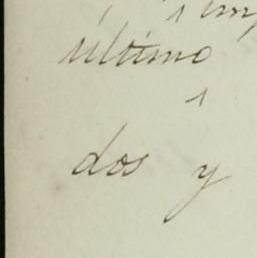 último
dos y